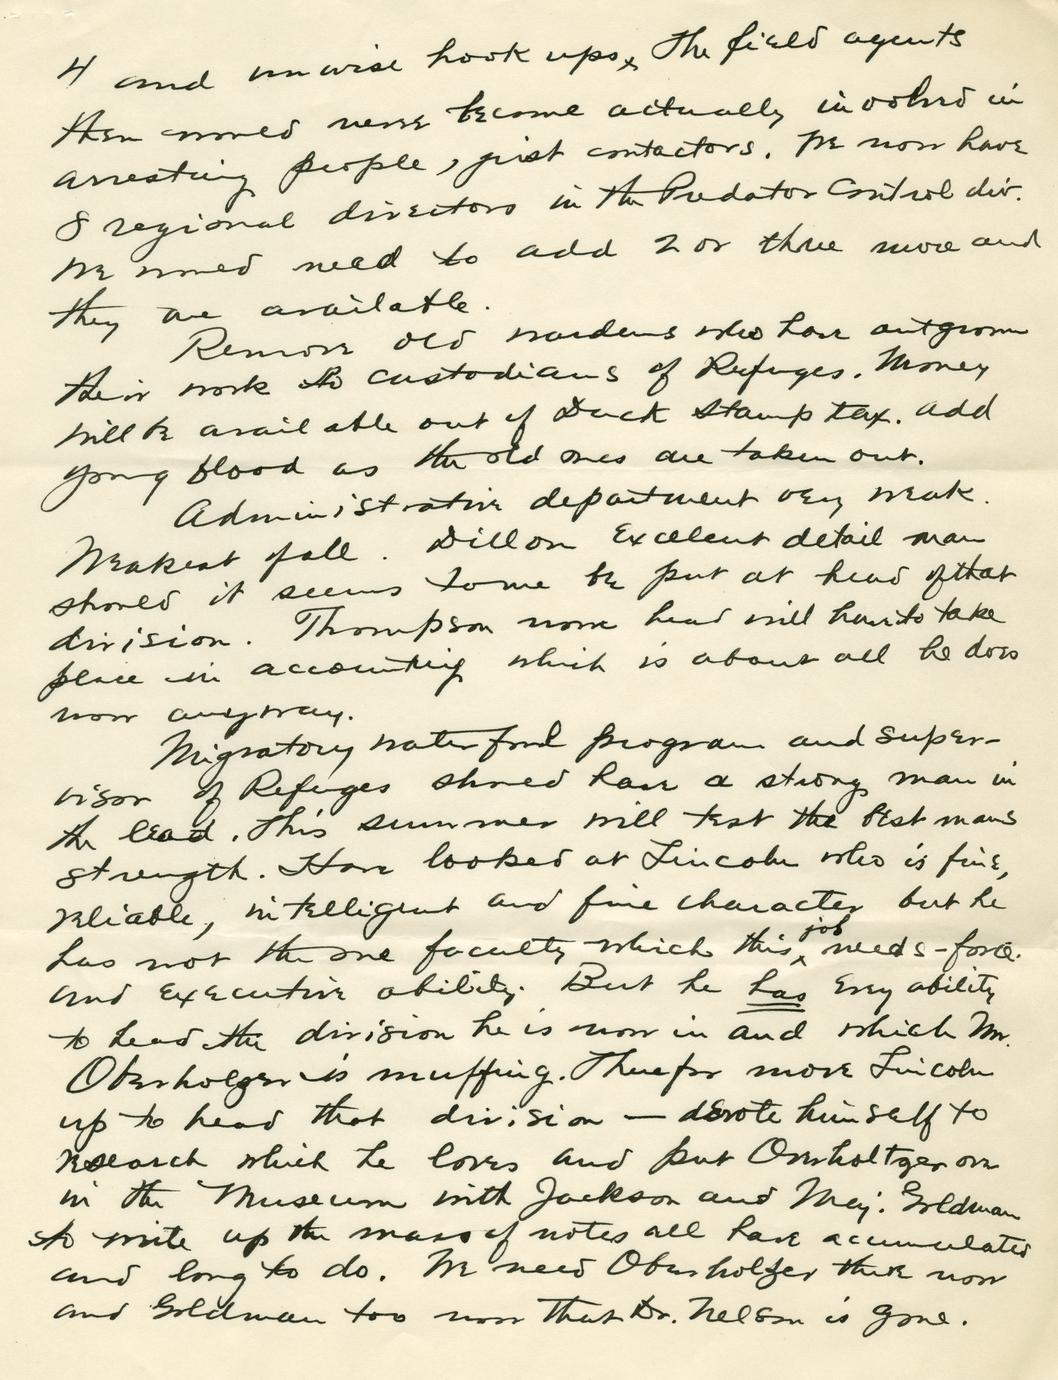 4 and unwise hook ups. The field agents
then would never become actually involved in
arresting people, just contactors. We now have
8 regional directors in the Predator Control div.
We would need to add 2 or three more and
they are available.
Remove old wardens who have outgrown
their work to custodians of Refuges. Money
will be available out of Duck Stamp tax. Add
young blood as the old ones are taken out.
Administrative department very weak.
Weakest of all. Dillon Excellent detail man
should it seems to me be put at head of that
division. Thompson now head will have to take
place in accounting which is about all he does
now anyway.
Migratory waterfowl program and super-
visor of Refuges should have a strong man in
the lead. This summer will test the best mans
strength. Have looked at Lincoln who is fine,
reliable, intelligent and fine character but he
has not the one faculty which this job needs - force
and executive ability. But he has every ability
to head the division he is now in and which Mr.
Oberholzer is muffing. Therefor move Lincoln
up to head that division — devote himself to
research which he loves and put Oberholtzer over
in the Museum with Jackson and Maj. Goldman
to write up the mass of notes all have accumulated
and long to do. We need Oberholzer there now
and Goldman too now that Dr. Nelson is gone.